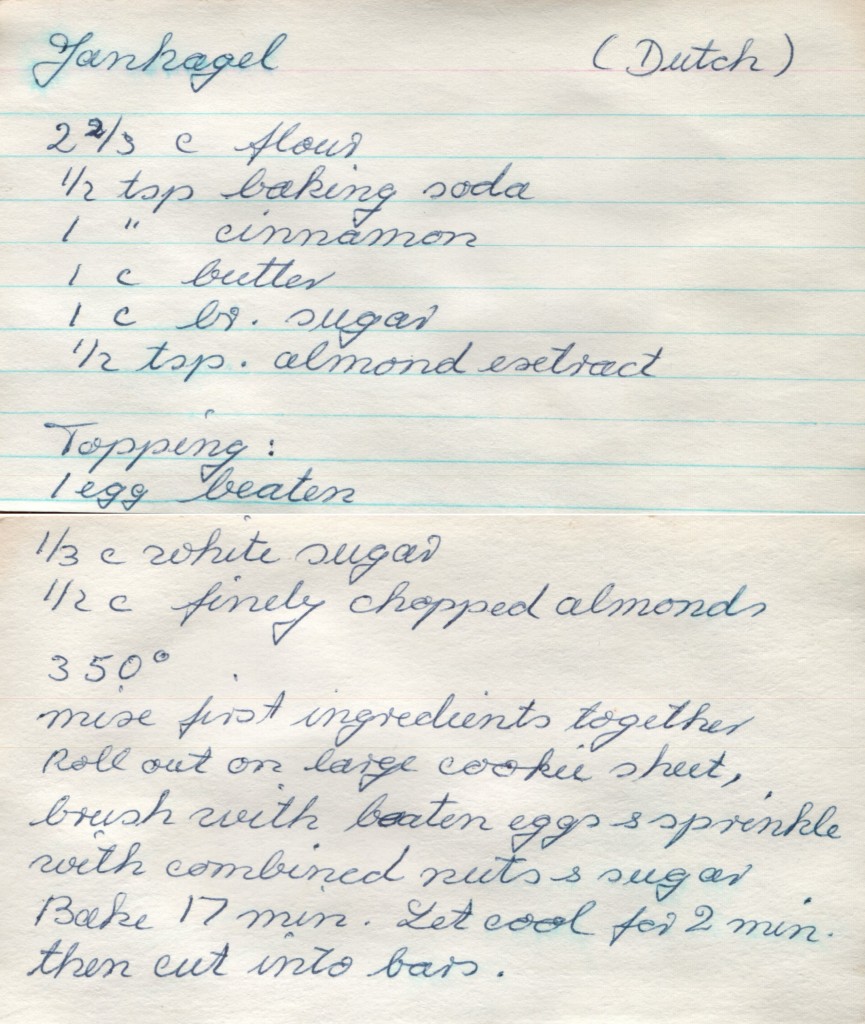 Janhagel (Dutch)
2 2/3 c flour
1/2 tsp baking soda
1 " cinnamon
1 c butter
1 c br. sugar
1/2 tsp. almond extract
Topping:
1 egg beaten
1/3 c white sugar
1/2 c finely chopped almonds
350°
mix first ingredients together
Roll out on large cookie sheet,
brush with beaten eggs & sprinkle
with combined nuts & sugar
Bake 17 min. Let cool for 2 min.
then cut into bars.